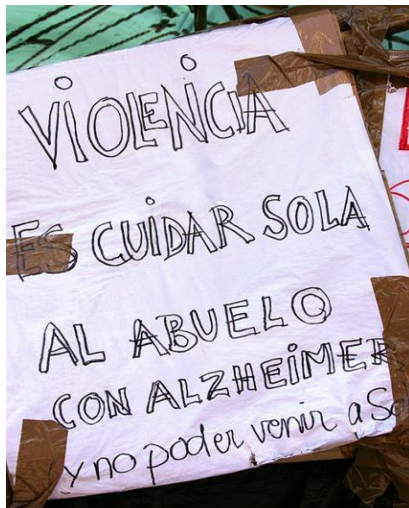 VIOLENCIA
ES CUIDAR SOLA
AL ABUELO
CON ALZHEIMER
y no poder venir a